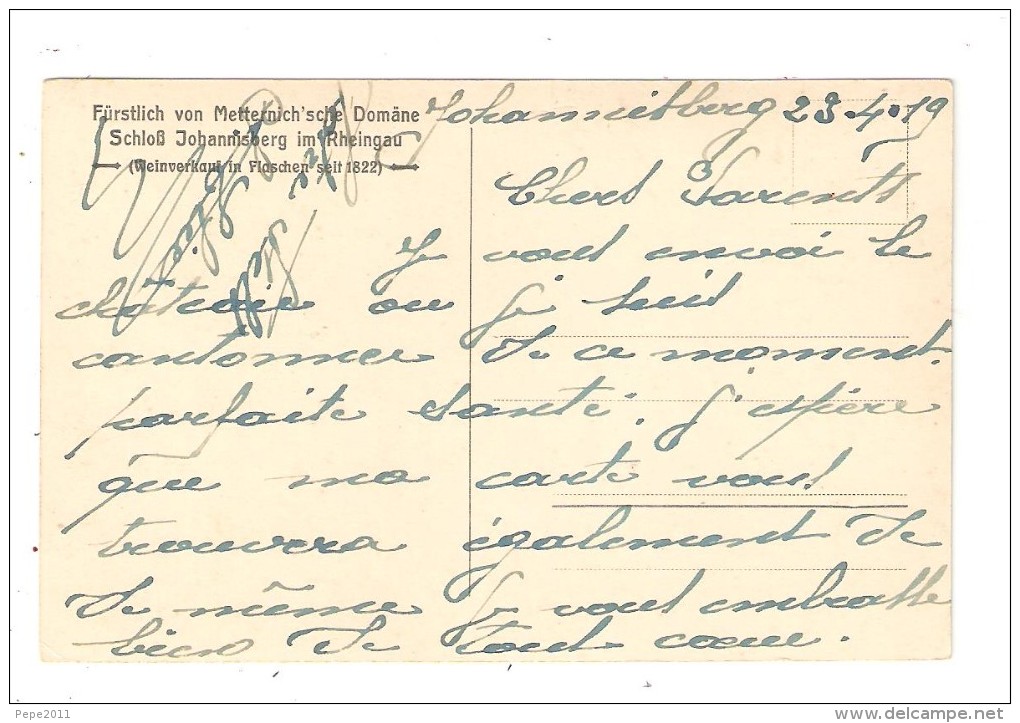 Fürstlich von Metternich'sche Domäne
Schloß Johannisberg im Rheingau
(Weinverkauf in Flaschen seit 1822)
Johannisberg 23.4.19
Chers Parents
Je vous envoi le
château ou je suis
cantonner de ce moment.
parfaite santé. J'espère
que ma carte vous
trouvera également de
de même Je vous embrasse
bien de tout cœur.
Pepe2011
delcampe.net